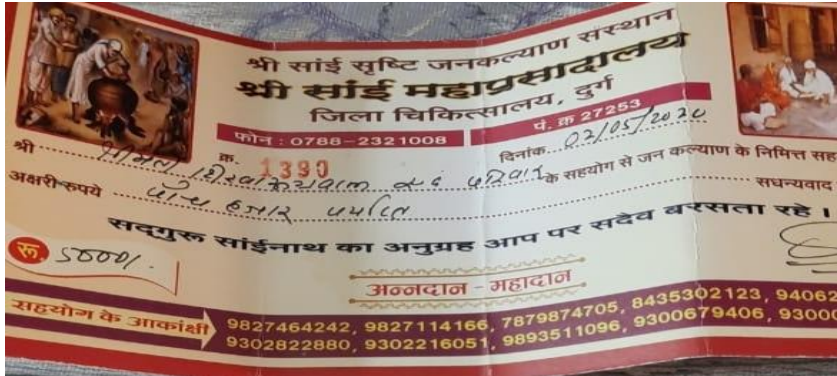 श्री सांई सृष्टि जनकल्याण संस्थान
श्री सांई महाप्रसादालय
जिला चिकित्सालय, दुर्ग
फोन : 0788-2321008 पं. क्र 27253
क्र. 1390 दिनांक 02/05/2020
श्री परिवार के सहयोग से जन कल्याण के निमित्त
अक्षरी रुपये पाँच हजार सधन्यवाद
सद्गुरू सांईनाथ का अनुग्रह आप पर सदैव बरसता रहे ।
रू. 5000/.
अन्नदान - महादान
सहयोग के आकांक्षी
9827464242, 9827114166, 7879874705, 8435302123, 9406
9302822880, 9302216051, 9893511096, 9300679406, 9300